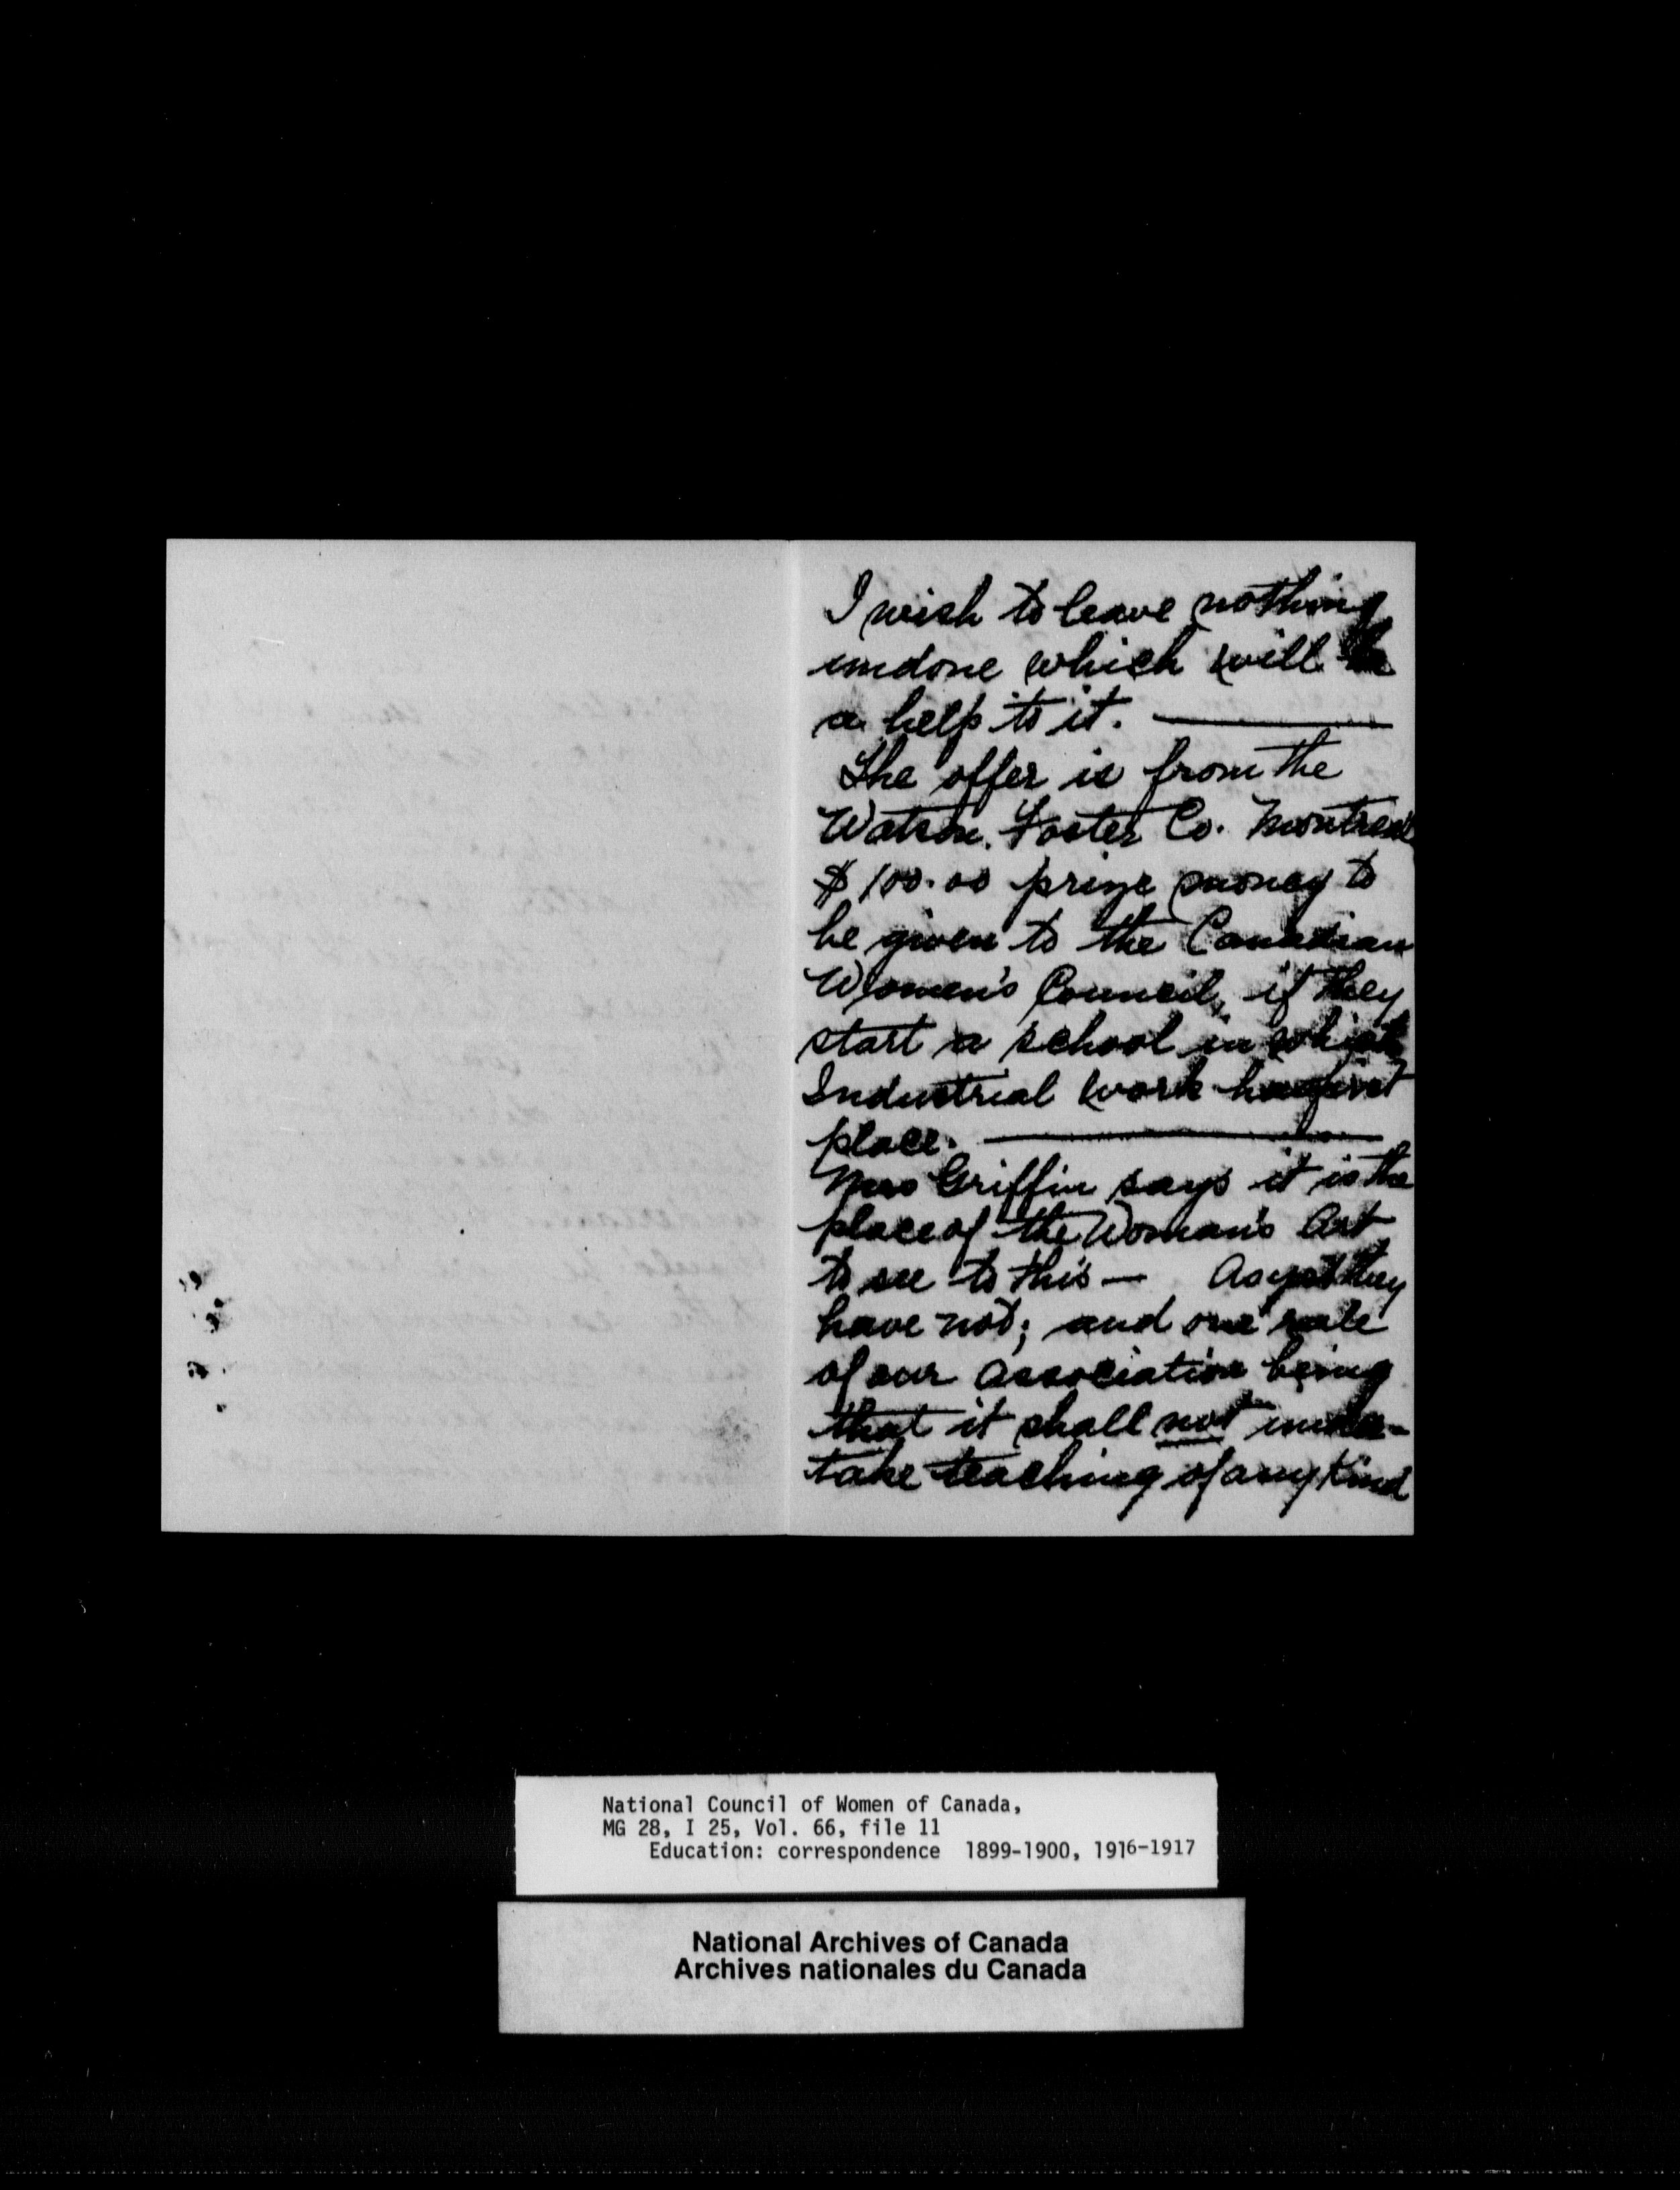 I wish to leave nothing
undone which will be
a help to it. —
The offer is from the
Watson. Foster Co. Montreal
$100.00 prize money to
be given to the Canadian
Women's Council, if they
start a school in which
Industrial work has first
place. —
Mrs Griffin says it is the
place of the Woman's Art
to see to this — As yet they
have not; and one rule
of our Association being
that it shall not under-
take teaching of any kind
National Council of Women of Canada,
MG 28, I 25, Vol. 66, file 11
Education: correspondence 1899-1900, 1916-1917
National Archives of Canada
Archives nationales du Canada